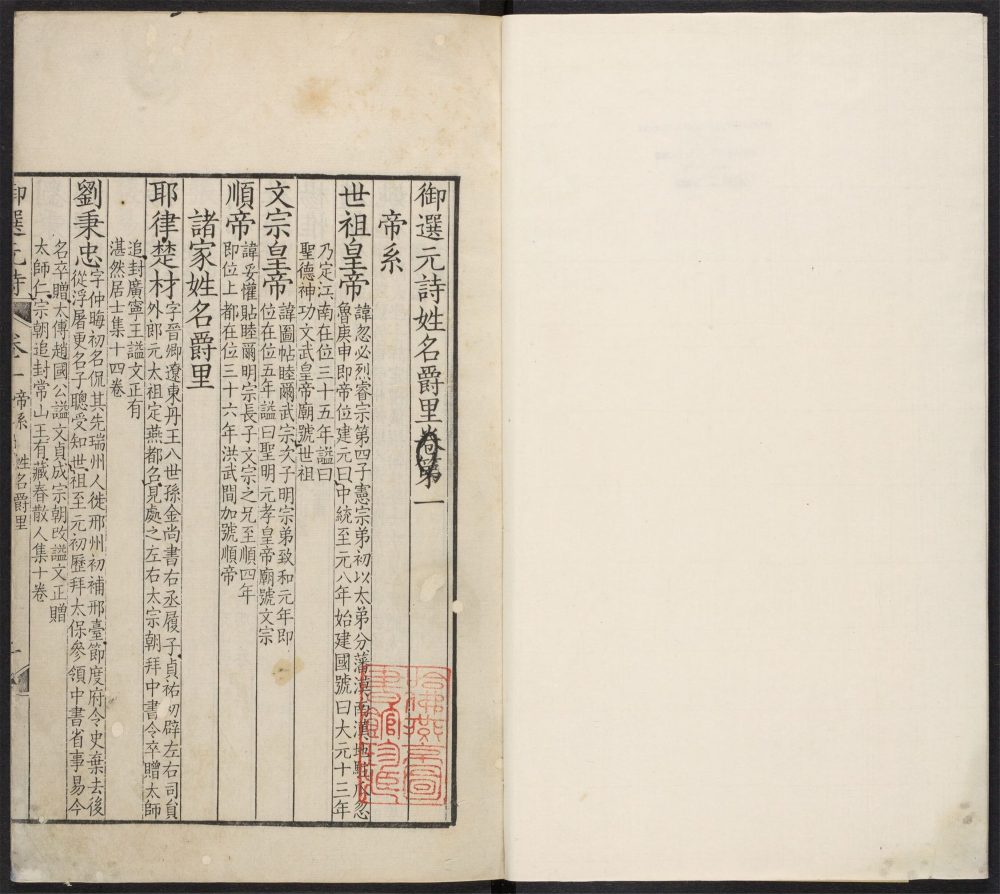 御選元詩姓名爵里卷第一
帝系
世祖皇帝
諱忽必烈睿宗第四子憲宗弟初以太弟分藩漠南
魯庚申即帝位建元曰中統至元八年始建國號曰大元十三年
乃定江南在位三十五年謚曰
聖德神功文武皇帝廟號世祖
文宗皇帝
諱圖帖睦爾武宗次子明宗弟致和元年即
位在位五年謚曰聖明元孝皇帝廟號文宗
順帝
諱妥懽貼睦爾明宗長子文宗之兄至順四年
即位上都在位三十六年洪武間加號順帝
諸家姓名爵里
耶律楚材
字晉卿遼東丹王八世孫金尚書右丞履子貞祐初辟左右司員
外郎元太祖定燕都召見處之左右太宗朝拜中書令卒贈太師
追封廣寧王謚文正有
湛然居士集十四卷
劉秉忠
字仲晦初名侃其先瑞州人徙邢州初補邢臺節度府令史棄去後
從浮屠更名子聰受知世祖至元初歷拜太保參領中書省事易今
名卒贈太傅趙國公謚文貞成宗朝改謚文正贈
太師仁宗朝追封常山王有藏春散人集十卷
御選元詩 卷一 帝系 姓名爵里 一
哈佛燕京圖
書館珍藏印